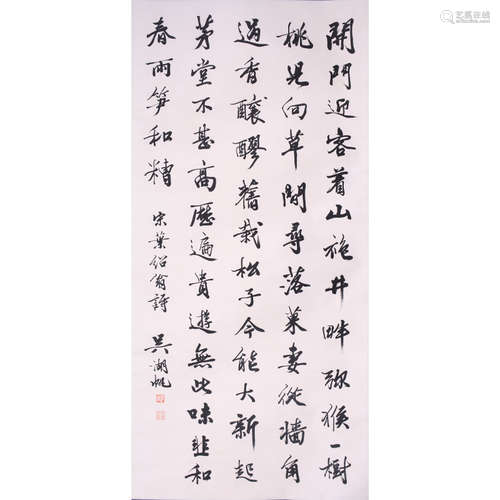 開門迎客着山袍井畔弥猴一樹
桃兒向草間尋落菓妻從墻角
過香釀醪舊栽松子今能大新起
茅堂不甚高歷遍貴遊無此味韭和
春雨笋和糟
宋葉紹翁詩
吳湖帆